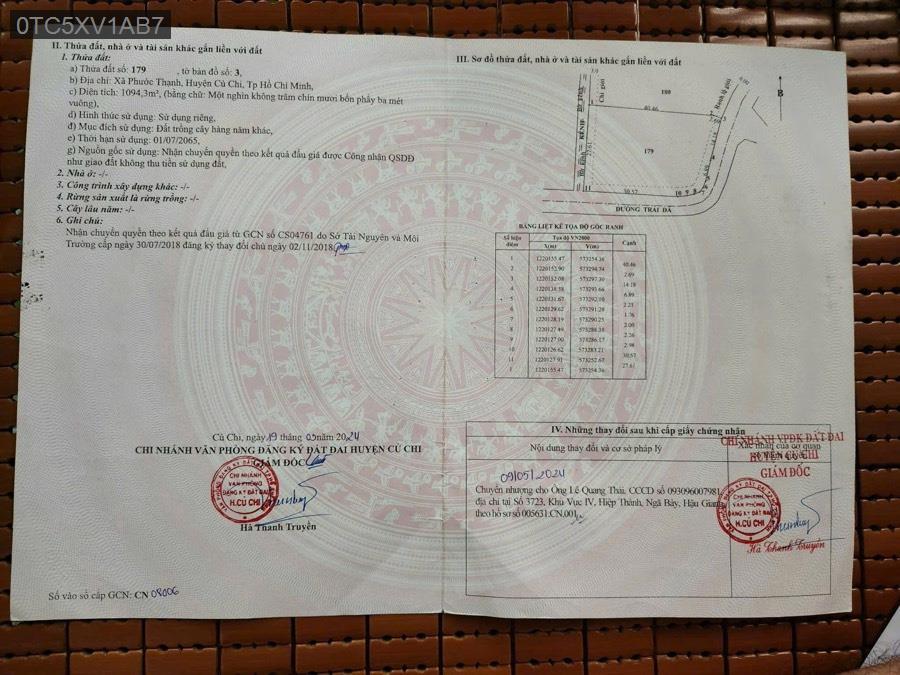 0TC5XV1AB7
II. Thửa đất, nhà ở và tài sản khác gắn liền với đất
1. Thửa đất:
a) Thửa đất số: 179 , tờ bản đồ số: 3,
b) Địa chỉ: Xã Phước Thạnh, Huyện Củ Chi, Tp Hồ Chí Minh,
c) Diện tích: 1094,3m², (bằng chữ: Một nghìn không trăm chín mươi bốn phẩy ba mét
vuông),
d) Hình thức sử dụng: Sử dụng riêng,
đ) Mục đích sử dụng: Đất trồng cây hàng năm khác,
e) Thời hạn sử dụng: 01/07/2065,
g) Nguồn gốc sử dụng: Nhận chuyển quyền theo kết quả đấu giá được Công nhận QSDĐ
như giao đất không thu tiền sử dụng đất,
2. Nhà ở: -/-
3. Công trình xây dựng khác: -/-
4. Rừng sản xuất là rừng trồng: -/-
5. Cây lâu năm: -/-
6. Ghi chú:
Nhận chuyển quyền theo kết quả đấu giá từ GCN số CS04761 do Sở Tài Nguyên và Môi
Trường cấp ngày 30/07/2018 đăng ký thay đổi chủ ngày 02/11/2018
Củ Chi, ngày 19 tháng 03 năm 2024
CHI NHÁNH VĂN PHÒNG ĐĂNG KÝ ĐẤT ĐAI HUYỆN CỦ CHI
GIÁM ĐỐC
CHI NHÁNH
VĂN PHÒNG
ĐĂNG KÝ ĐẤT ĐAI
H.CỦ CHI
Hà Thanh Truyền
Số vào sổ cấp GCN: CN 08006
III. Sơ đồ thửa đất, nhà ở và tài sản khác gắn liền với đất
Chỉ giới
180
40.46
B
KÊNH
27.61
179
14.18
30.57
11
10
9
8
ĐƯỜNG TRẢI ĐÁ
BẢNG LIỆT KÊ TỌA ĐỘ GÓC RANH
Số hiệu điểm Tọa độ VN2000 Cạnh
X(m) Y(m)
1 1220155.47 573254.36
40.46
2 1220152.90 573294.74
2.69
3 1220152.08 573297.30
14.18
4 1220138.58 573293.66
6.89
5 1220131.67 573292.10
2.23
6 1220129.62 573291.28
1.76
7 1220128.19 573290.25
2.00
8 1220127.49 573288.38
2.26
9 1220127.00 573286.17
2.98
10 1220126.62 573283.21
30.57
11 1220127.91 573252.67
27.61
1 1220155.47 573254.36
IV. Những thay đổi sau khi cấp giấy chứng nhận
Nội dung thay đổi và cơ sở pháp lý
Xác nhận của cơ quan
CHI NHÁNH VPĐK ĐẤT ĐAI
HUYỆN CỦ CHI
GIÁM ĐỐC
09/05/2024
Chuyển nhượng cho Ông Lê Quang Thái, CCCD số 093096007981,
địa chỉ tại Số 3723, Khu Vực IV, Hiệp Thành, Ngã Bảy, Hậu Giang
theo hồ sơ số 005631.CN.001
CHI NHÁNH
VĂN PHÒNG
ĐĂNG KÝ ĐẤT ĐAI
H.CỦ CHI
Hà Thanh Truyền